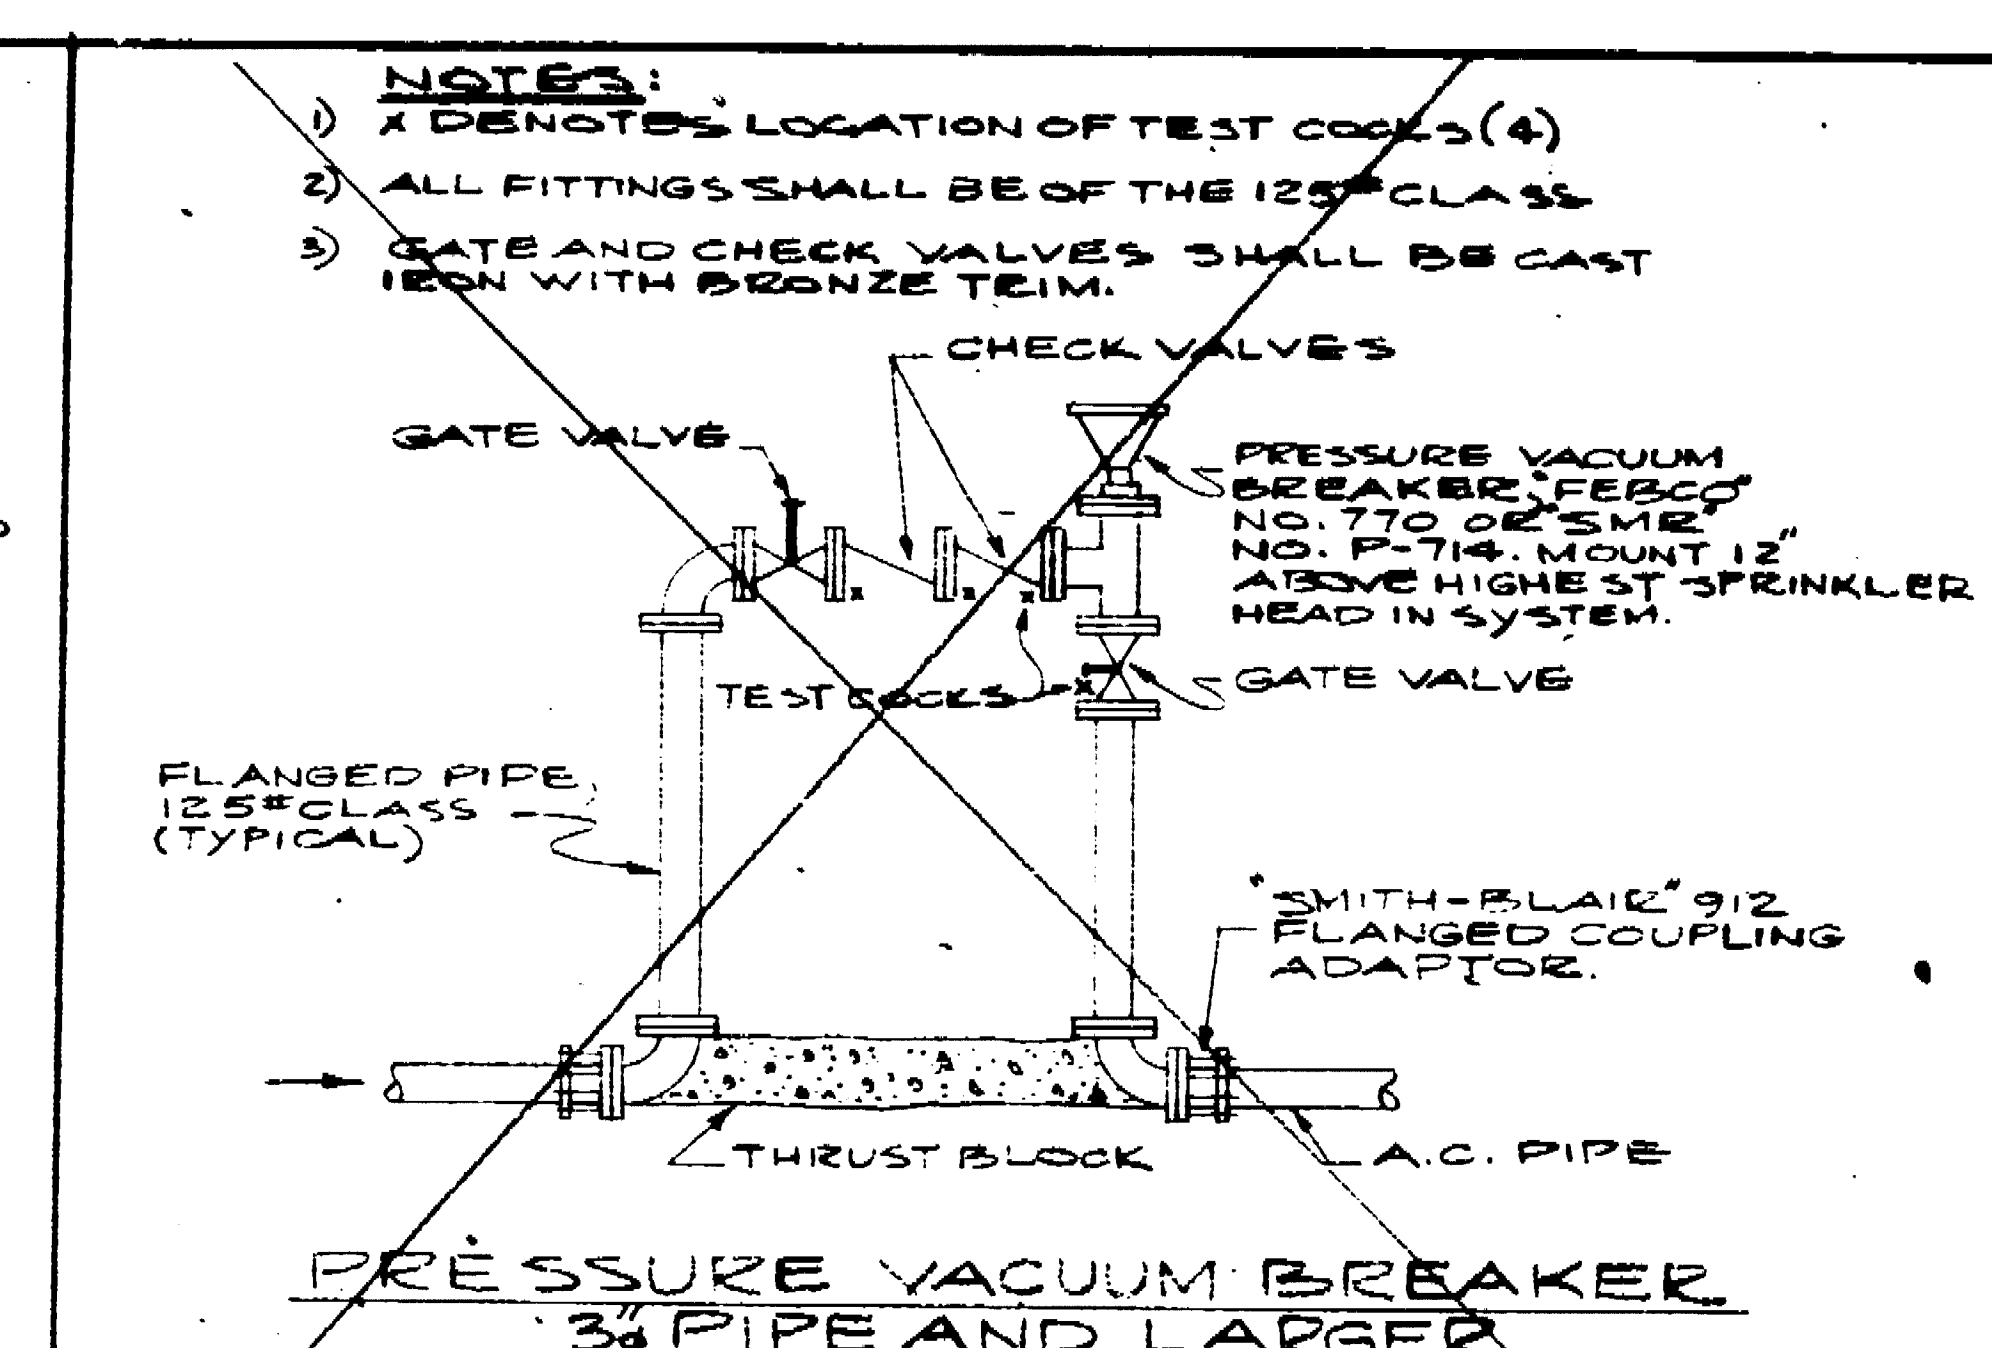 NOTES:
1) X DENOTES LOCATION OF TEST COCKS (4)
2) ALL FITTINGS SHALL BE OF THE 125# CLASS
3) GATE AND CHECK VALVES SHALL BE CAST
IRON WITH BRONZE TRIM.
CHECK VALVES
GATE VALVE
PRESSURE VACUUM
BREAKER, "FEBCO"
NO. 770 OR "SMR"
NO. P-714. MOUNT 12"
ABOVE HIGHEST SPRINKLER
HEAD IN SYSTEM.
X X X
TEST COCKS X
GATE VALVE
FLANGED PIPE
125# CLASS
(TYPICAL)
"SMITH-BLAIR" 912
FLANGED COUPLING
ADAPTOR.
THRUST BLOCK
A.C. PIPE
PRESSURE VACUUM BREAKER
3" PIPE AND LARGER